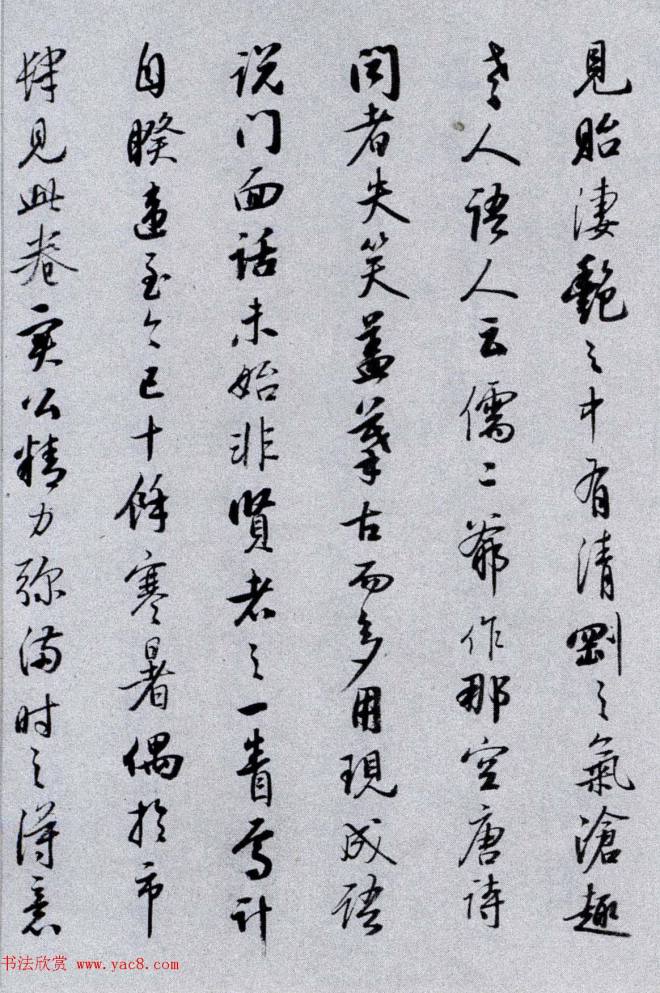 見貽淒艷之中有清剛之氣滄趣
老人語人云儒二爺作那空唐诗
闻者失笑蓋摹古而多用現成語
说门面话未始非賢者之一眚焉计
自睽違至今已十餘寒暑偶於市
肆見此卷实公精力弥满时之得意
书法欣赏 www.yac8.com